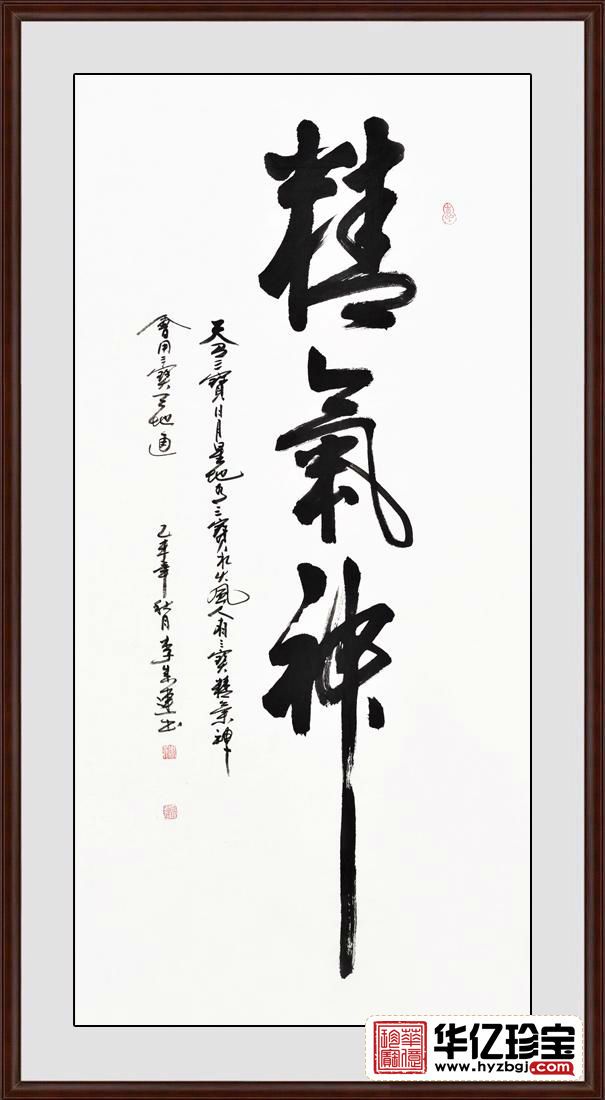 精氣神
天有三寶日月星地有三寶水火風人有三寶精氣神
會用三寶天地通
乙未年秋月李朱蓮书
华亿珍宝
www.hyzbgj.com